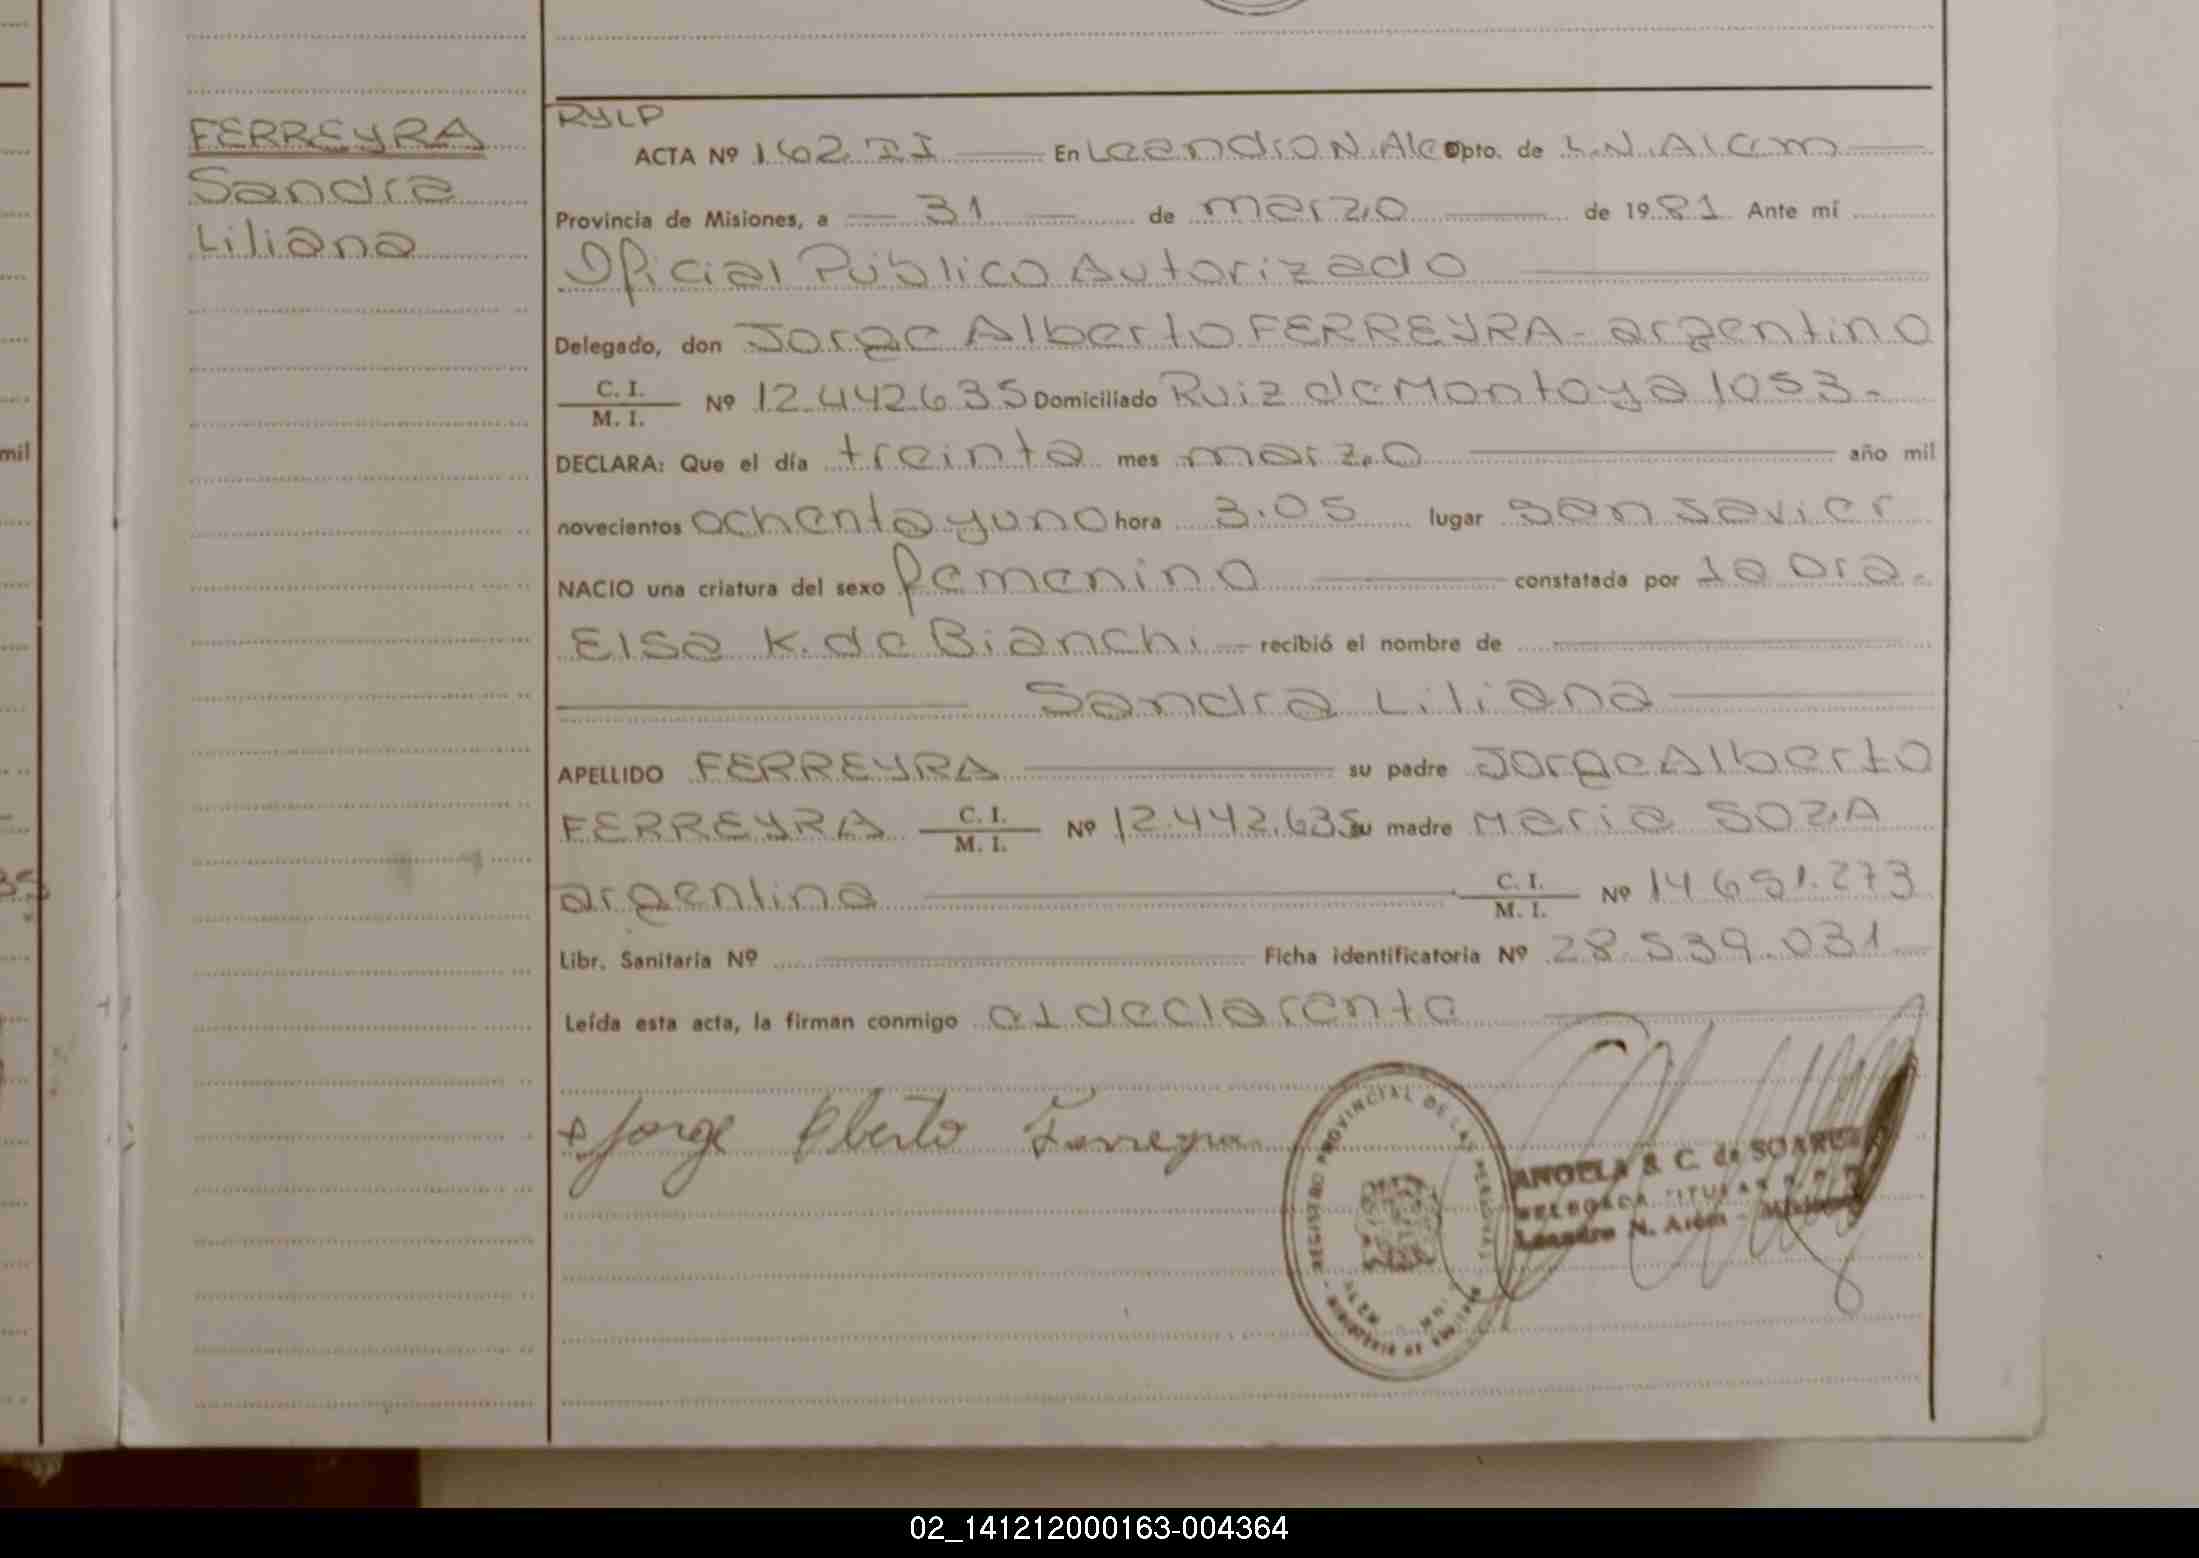 FERREYRA
Sandra
Liliana
RYLP
ACTA Nº 162 II En Leandro N. Alem Dpto. de L.N. Alem
Provincia de Misiones, a 31 de marzo de 1981 Ante mí
Oficial Público Autorizado
Delegado, don Jorge Alberto FERREYRA - argentino
C. I.
M. I. Nº 12.442.635 Domiciliado Ruiz de Montoya 1053.-
DECLARA: Que el día treinta mes marzo año mil
novecientos ochenta y uno hora 3.05 lugar San Javier
NACIO una criatura del sexo femenino constatada por la Dra.
Elsa K. de Bianchi recibió el nombre de
Sandra Liliana
APELLIDO FERREYRA su padre Jorge Alberto
FERREYRA C. I.
M. I. Nº 12.442.635 su madre Maria SOZA
argentina C. I.
M. I. Nº 14.651.273
Libr. Sanitaria Nº Ficha identificatoria Nº 28.539.031
Leída esta acta, la firman conmigo el declarante
Jorge Alberto Ferreyra
REGISTRO PROVINCIAL DE LAS PERSONAS
ALEM
MINISTERIO DE GOBIERNO
ANGELA B. C. de SOAREZ
DELEGADA TITULAR
Leandro N. Alem - Misiones
mil
35
02_141212000163-004364